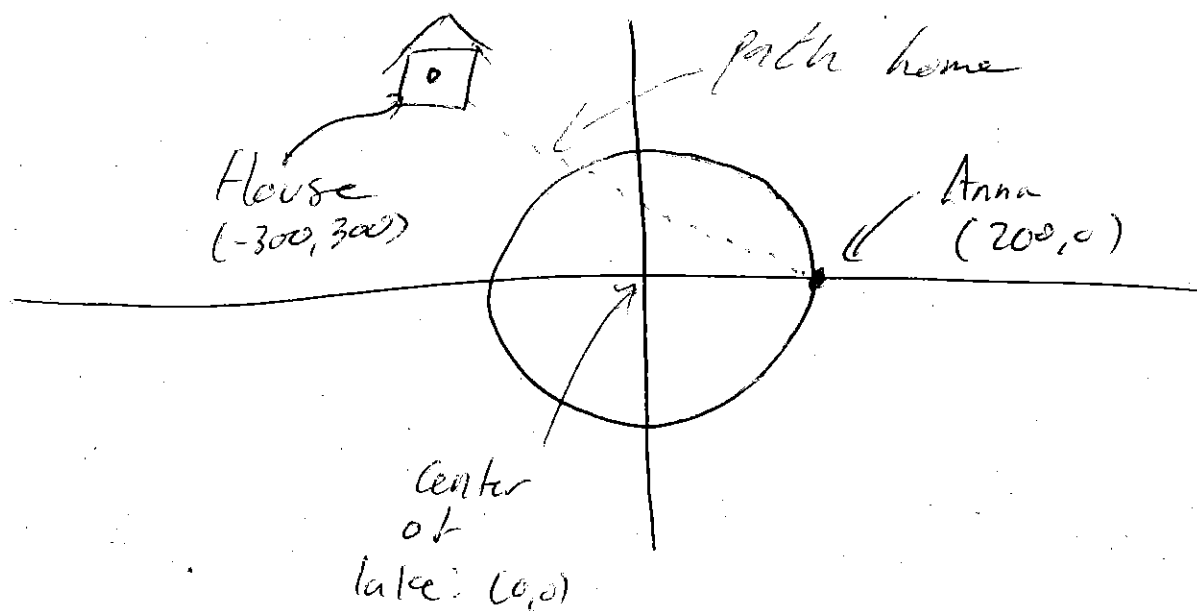 path home
House
(-300, 300)
Anna
(200, 0)
Center
of
lake: (0,0)